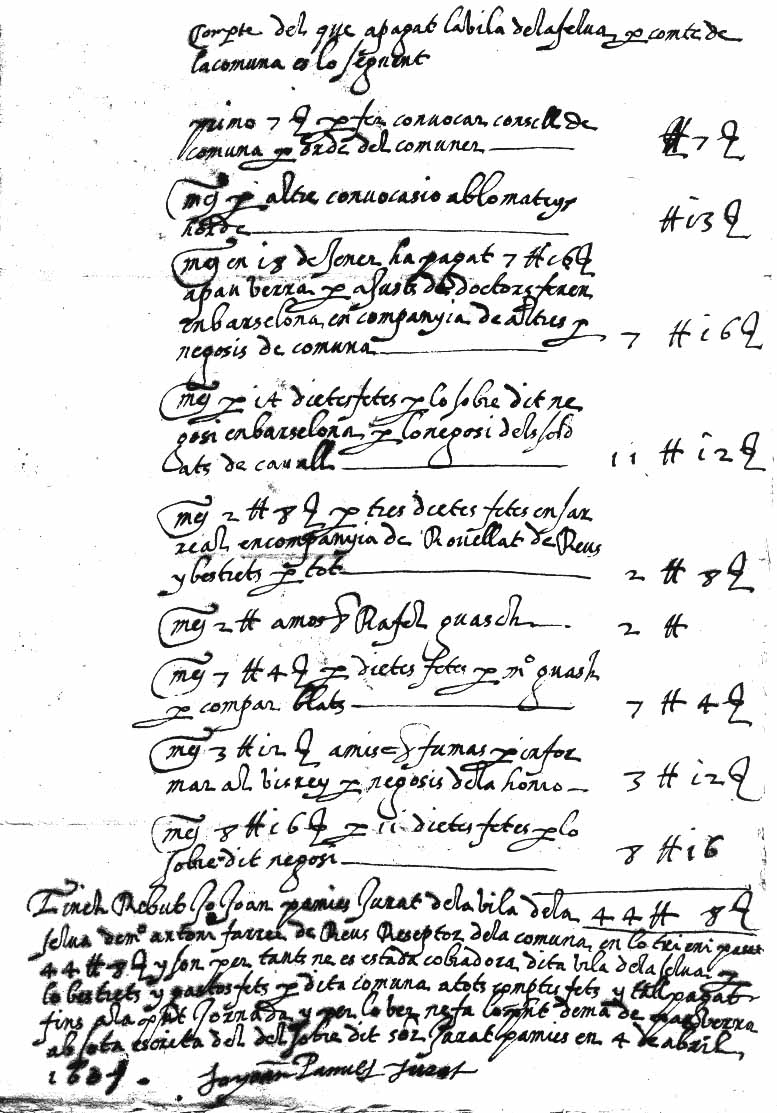 Compte del que a pagat la vila dela selva p comte de
la comuna es lo seguent
primo 7 ꝗ p fer convocar consell de
comuna p orde del comuner # 7 ꝗ
mes p altre convocasio ab lo mateyx
horde # i3 ꝗ
mes en i8 de Jener ha pagat 7 # i6 ꝗ
a pau verra p asusts de doctors feren
en barselona en companyia de altres p
negosis de comuna 7 # i6 ꝗ
mes p i4 dietes fetes p lo sobre dit ne
gosi en barselona p lo negosi dels sold
ats de cavall ii # i2 ꝗ
mes 2 # 8 ꝗ p tres dietes fetes en sar
real en companyia de Rovellat de Reus
y bestrets p tot 2 # 8 ꝗ
mes 2 # a mos Rafel guasch 2 #
mes 7 # 4 ꝗ p dietes fetes p mº guash
p compar blats 7 # 4 ꝗ
mes 3 # i2 ꝗ a fumas p infor
mar al visrey p negosis dela 3 # i2 ꝗ
mes 8 # i6 ꝗ p ii dietes fetes p lo
sobre dit negosi 8 # i6
Tinch Rebut Jo Joan pamies Jurat dela vila dela 44 # 8 ꝗ
selva de mº antoni farrer de Reus Reseptor dela comuna en lo trieni pasat
44 # 8 ꝗ y son per tants ne es estada cobradora dita vila dela selva p
lo bestrets y gastos fets p dita comuna a tots comptes fets y tall pagat
fins a la pnt Jornada y per lo ver ne fa lo pnt de ma de pau verra
ab sota escreta del del sobre dit sor Jurat pamies en 4 de abril
Joan Pamies Jurat